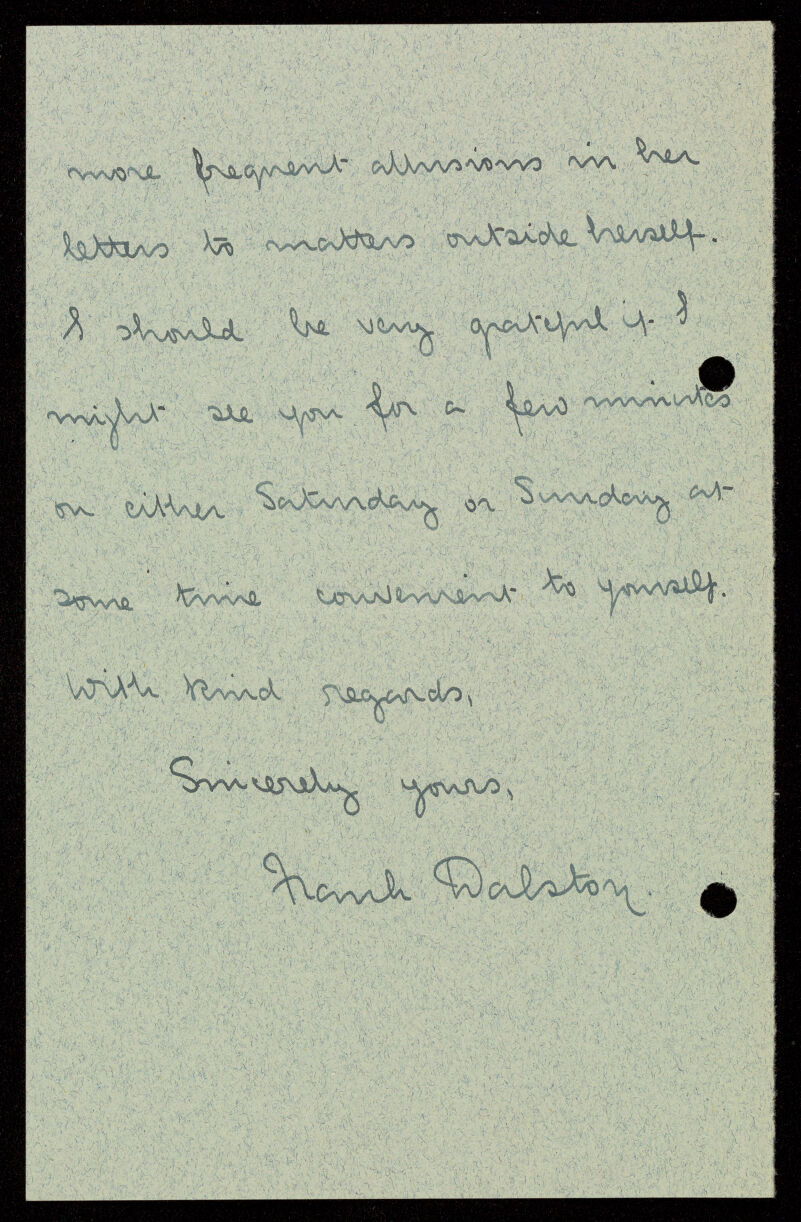 more frequent allusions in her
letters to matters outside herself.
I should be very grateful if I
might see you for a few minutes
on either Saturday or Sunday at
some time convenient to yourself.
With kind regards,
Sincerely yours,
Frank Dalston.